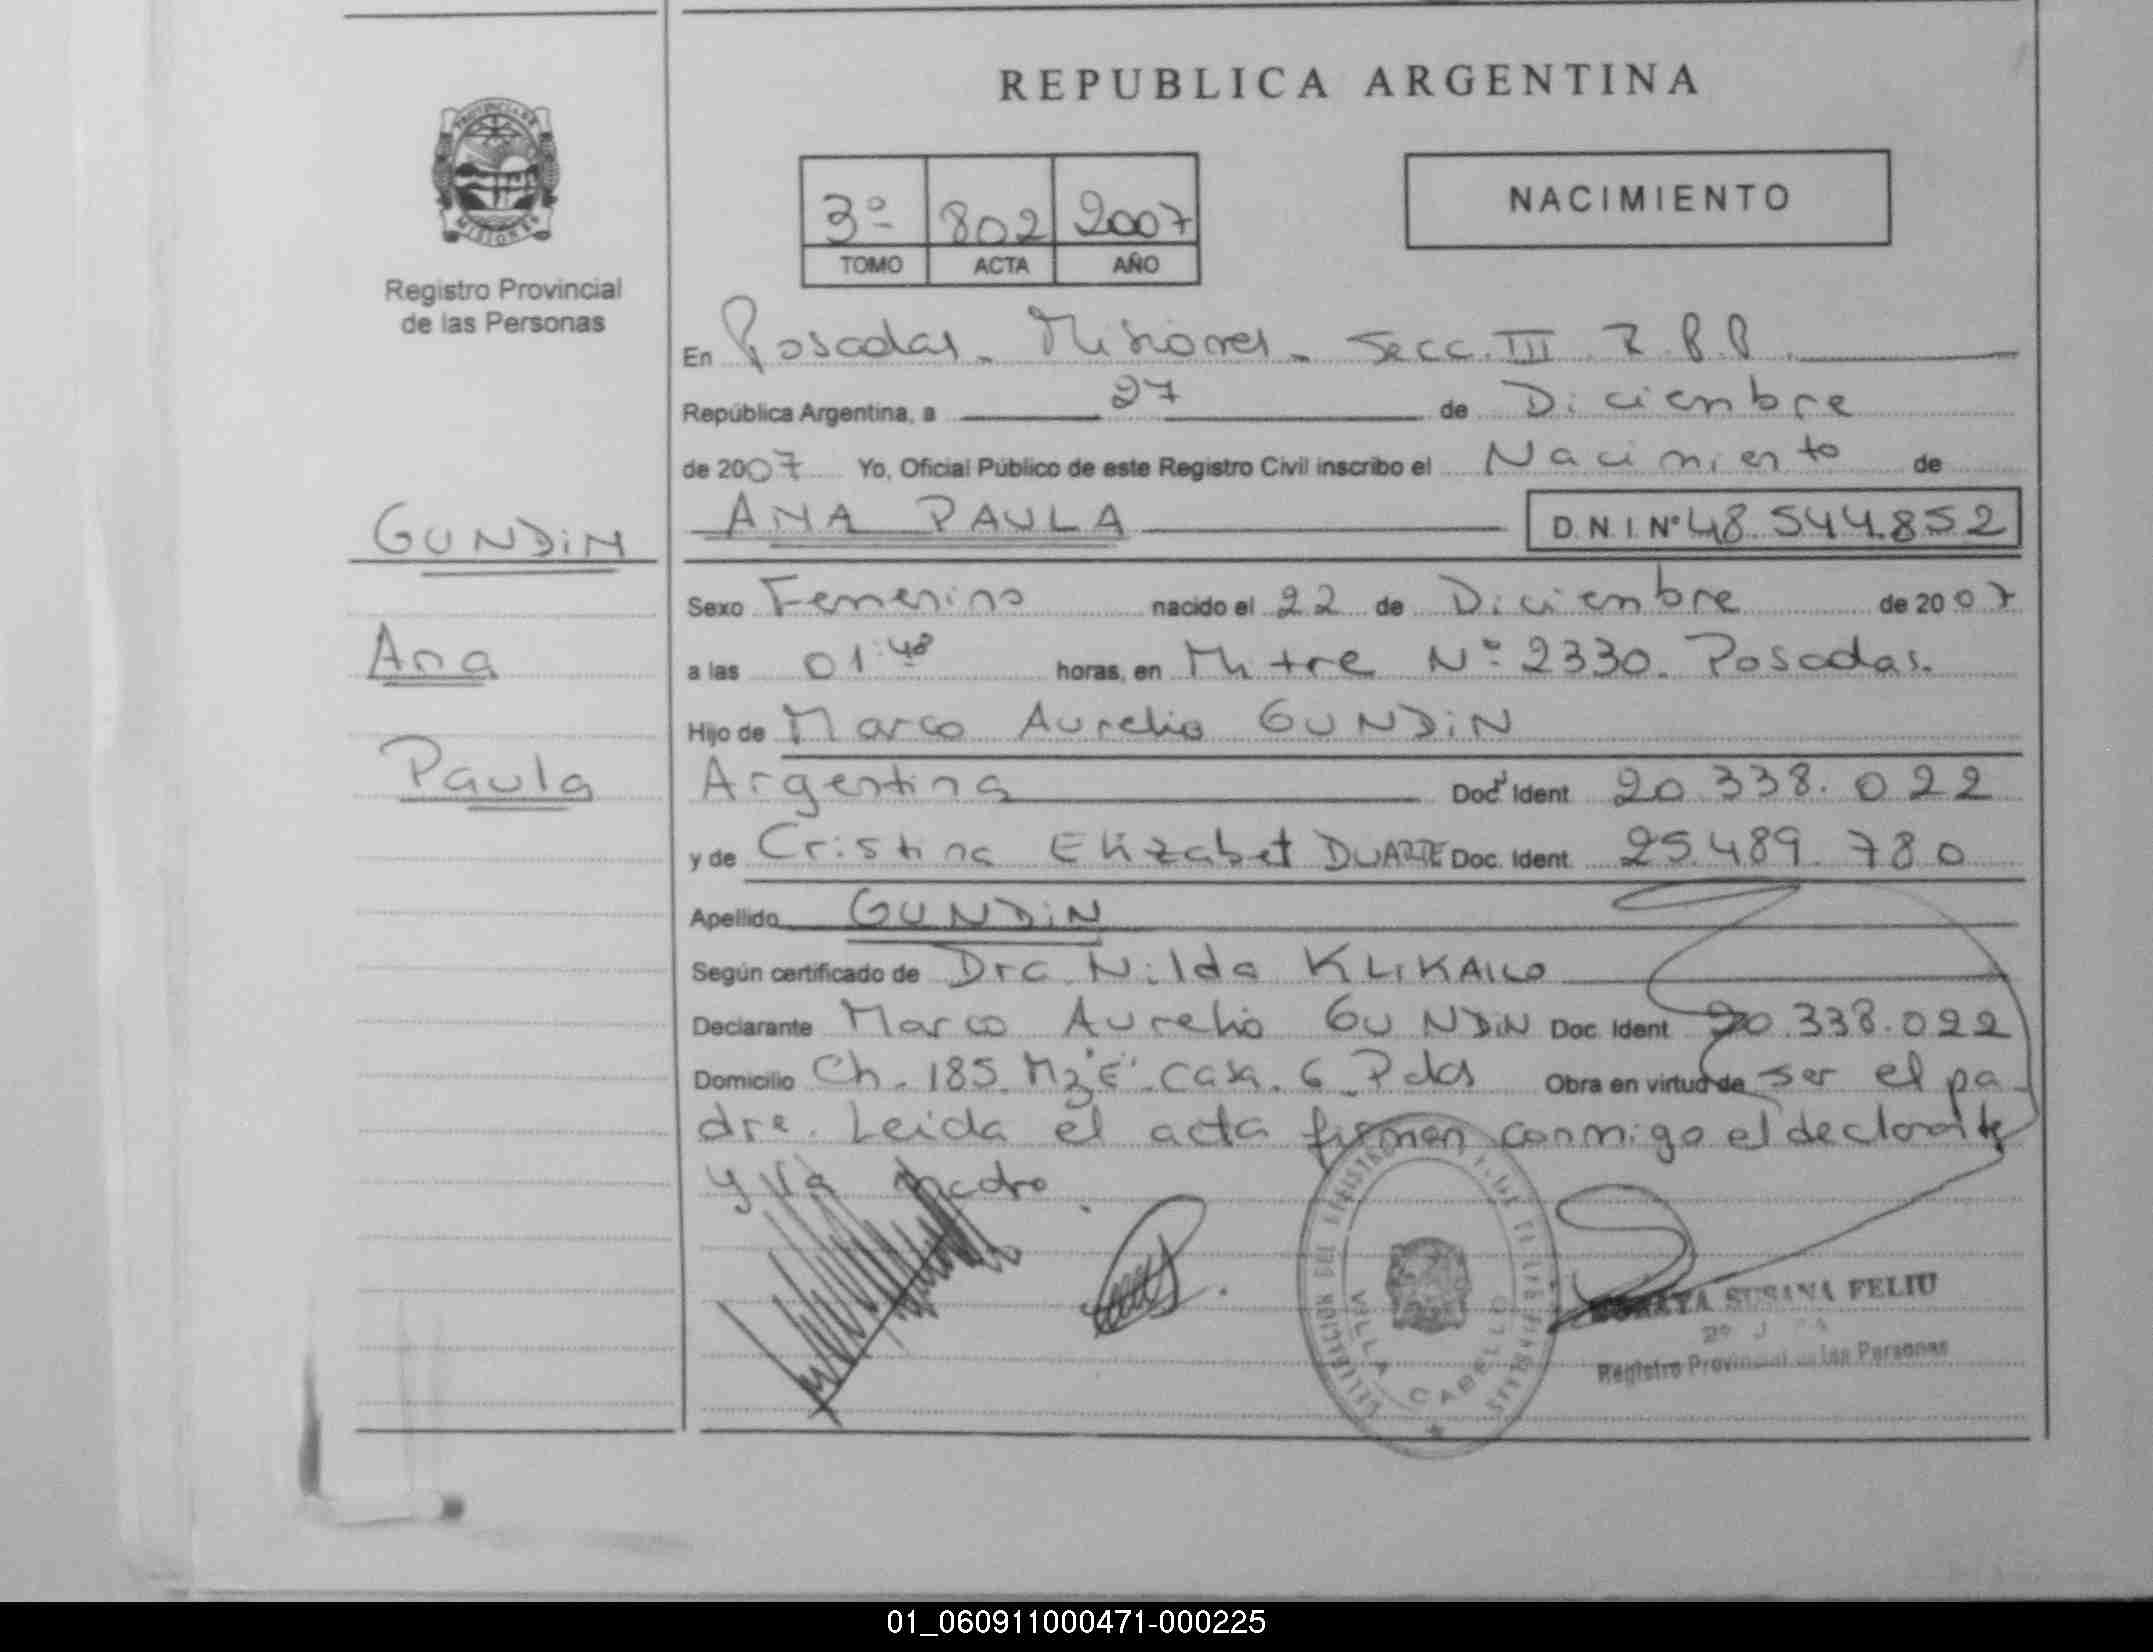 REPUBLICA ARGENTINA
PROVINCIA DE MISIONES
Registro Provincial
de las Personas
3º 802 2007
TOMO ACTA AÑO
NACIMIENTO
En Posadas - Misiones - Secc. III R.P.P.
República Argentina, a 27 de Diciembre
de 2007 Yo, Oficial Público de este Registro Civil inscribo el Nacimiento de
GUNDiN
ANA PAULA D.N.I. Nº 48.544.852
Sexo Femenino nacido el 22 de Diciembre de 2007
Ana
a las 01:40 horas, en Mitre Nº 2330. Posadas.
Hijo de Marco Aurelio GUNDiN
Paula
Argentina Doc. Ident 20.338.022
y de Cristina Elizabet DUARTE Doc. Ident. 25.489.780
Apellido GUNDiN
Según certificado de Dra Nilda
Declarante Marco Aurelio GUNDiN Doc. Ident 20.338.022
Domicilio Ch. 185. Mz "E". Casa. 6 Pdas Obra en virtud de ser el pa-
dre. Leida el acta firman conmigo el declarante
y la madre.
VILLA CABELLO
SUSANA FELIU
Registro Provincial de las Personas
01_060911000471-000225